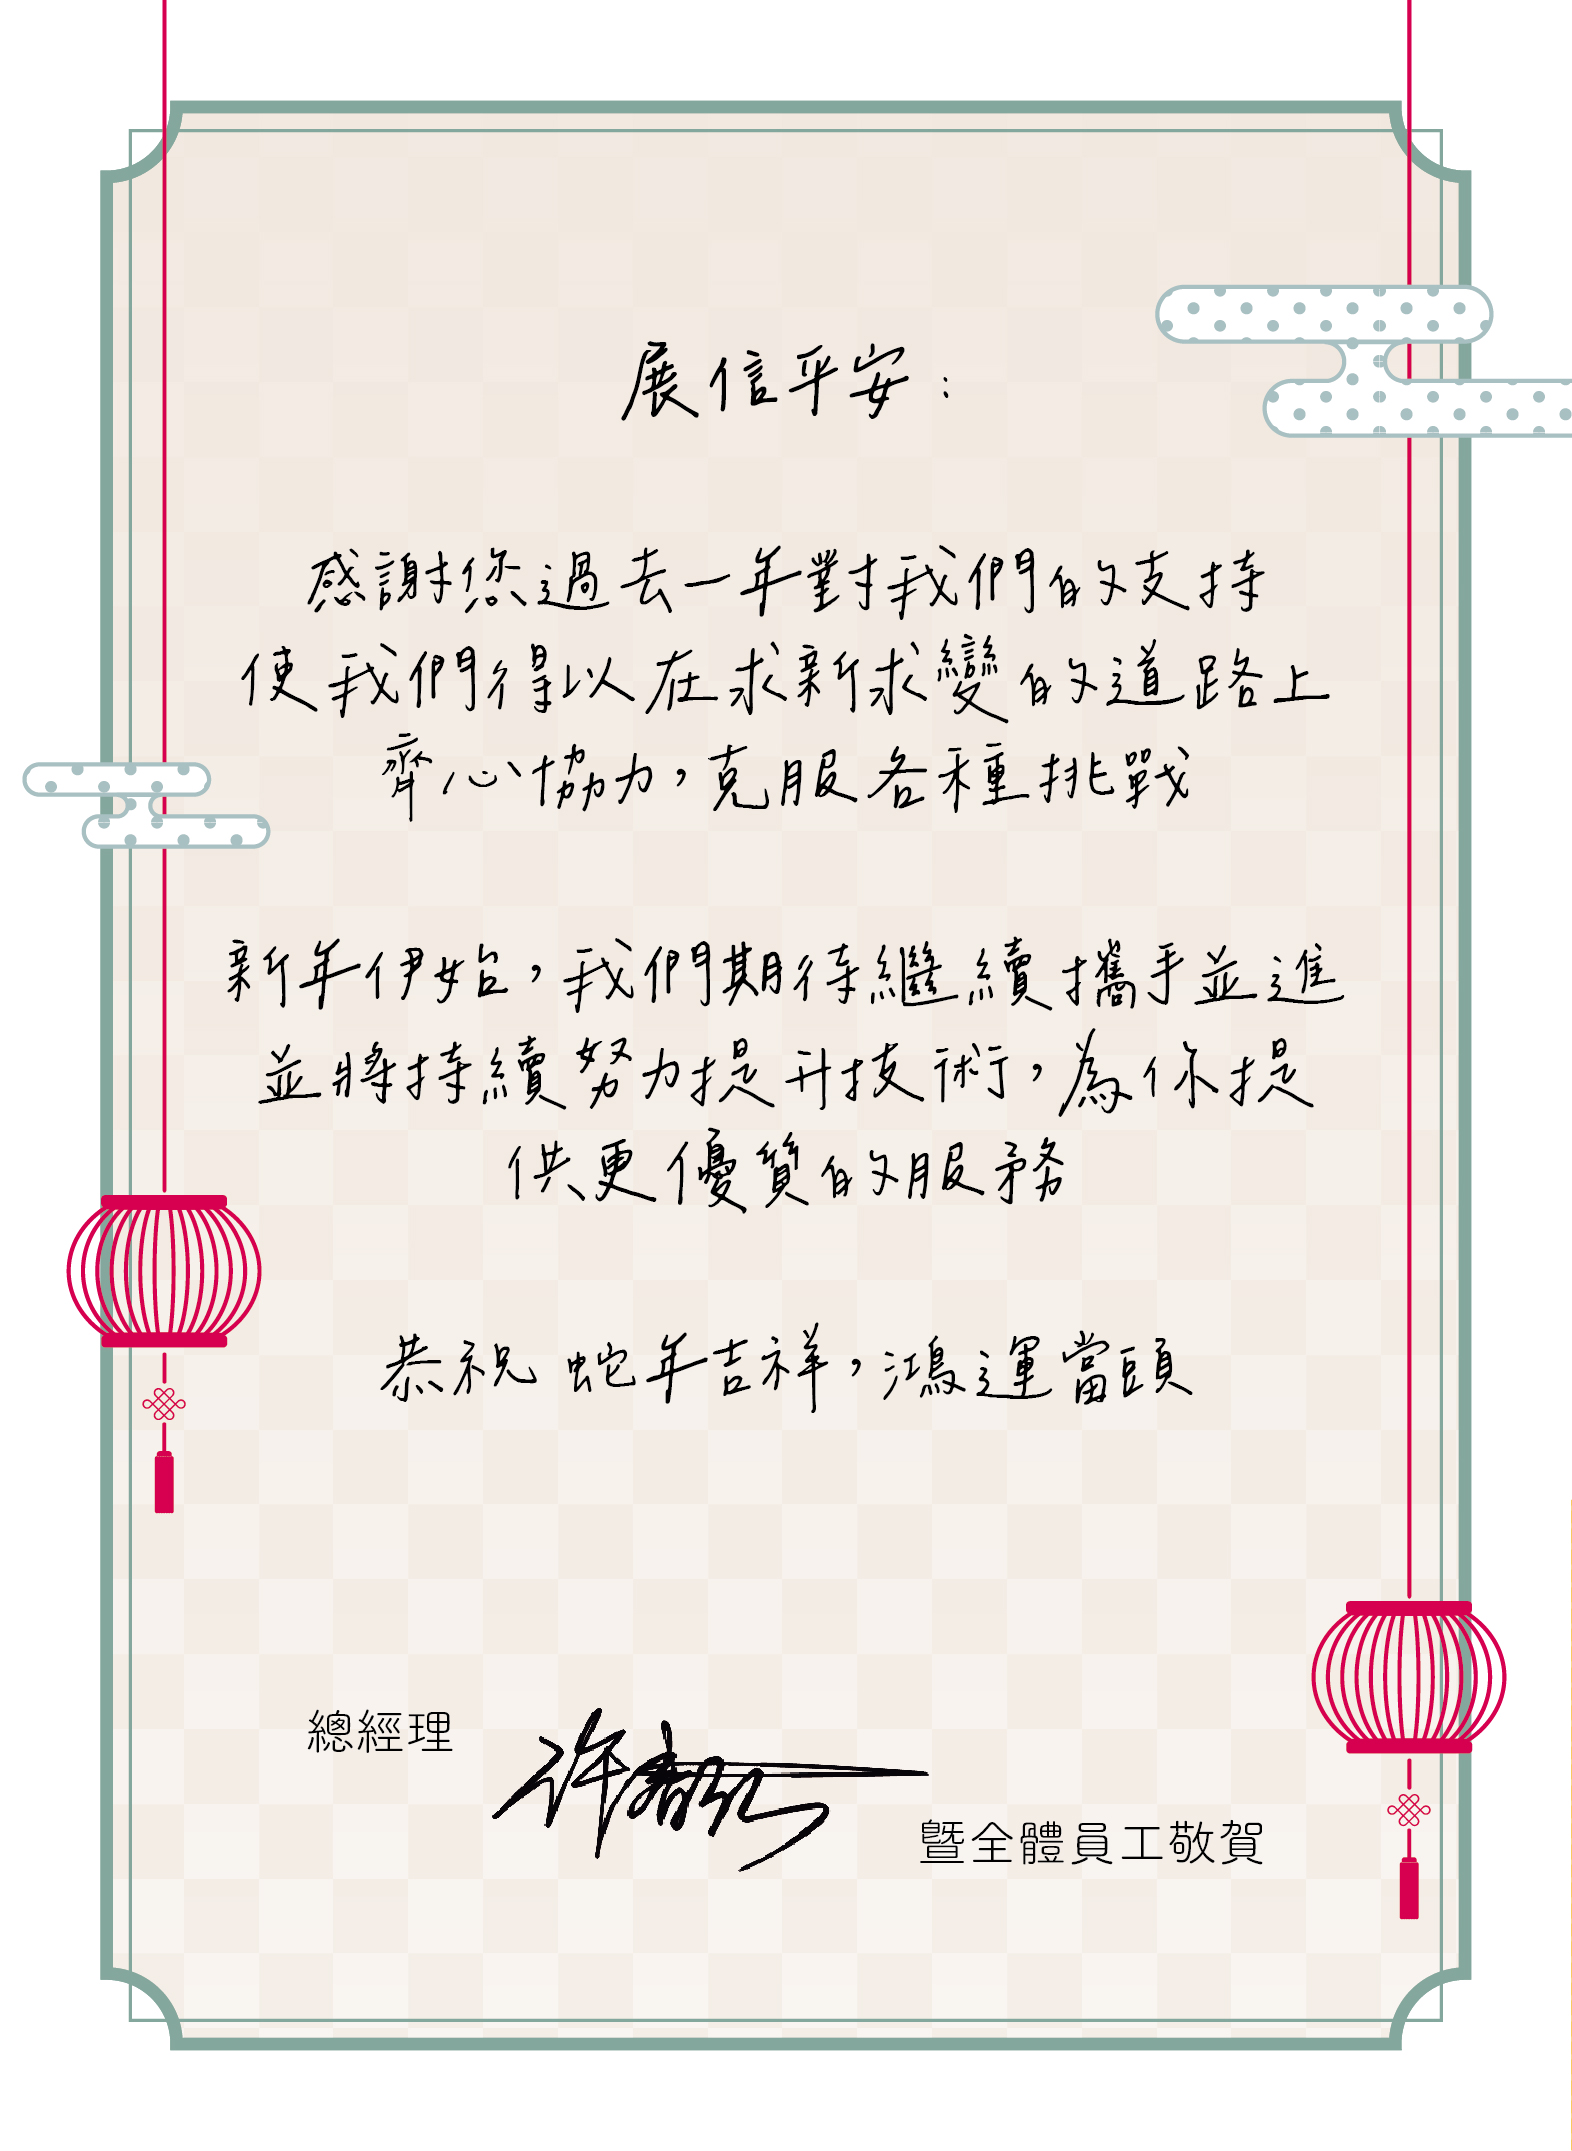 展信平安：
感謝您過去一年對我們的支持
使我們得以在求新求變的道路上
齊心協力，克服各種挑戰
新年伊始，我們期待繼續攜手並進
並將持續努力提升技術，為你提
供更優質的服務
恭祝 蛇年吉祥，鴻運當頭
總經理
許
暨全體員工敬賀